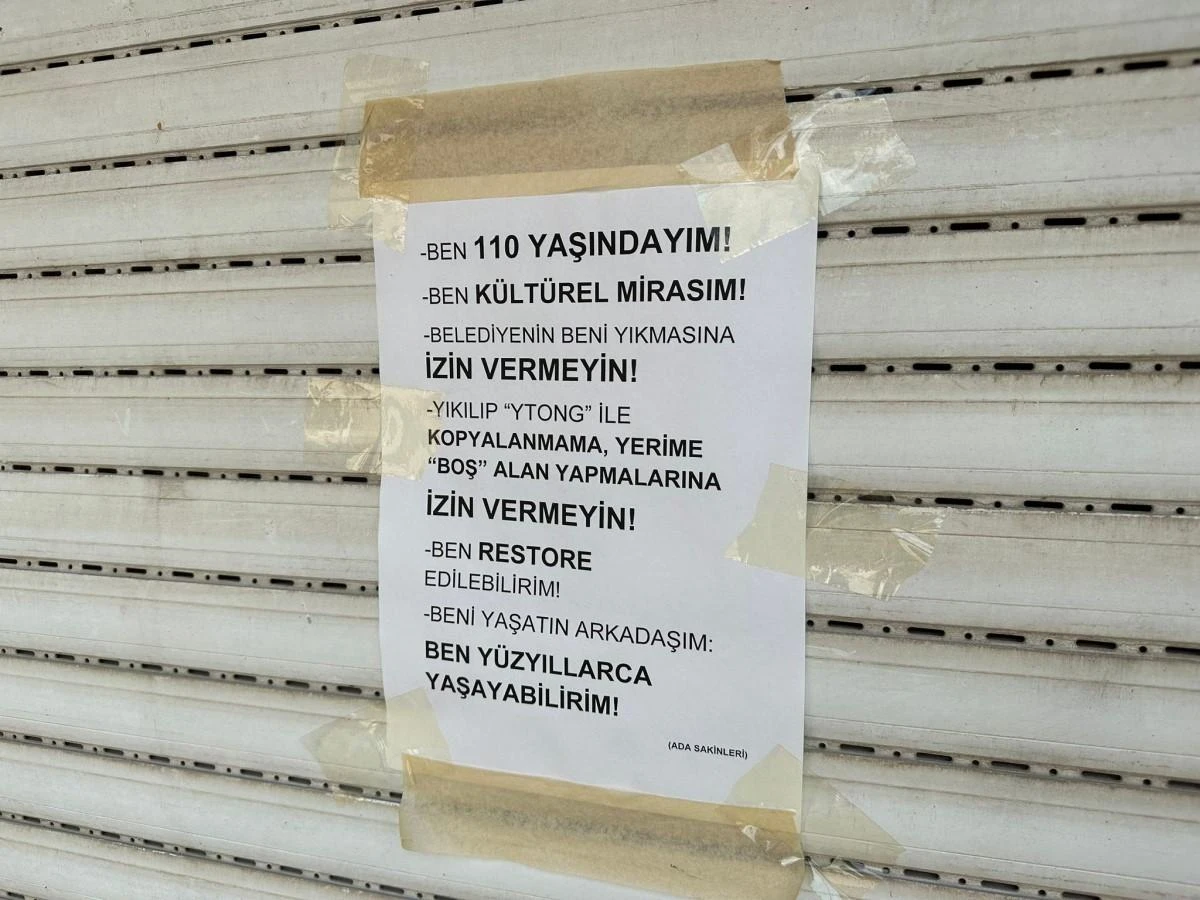 -BEN 110 YAŞINDAYIM!
-BEN KÜLTÜREL MİRASIM!
-BELEDİYENİN BENİ YIKMASINA
İZİN VERMEYİN!
-YIKILIP “YTONG” İLE
KOPYALANMAMA, YERİME
“BOŞ” ALAN YAPMALARINA
İZİN VERMEYİN!
-BEN RESTORE
EDİLEBİLİRİM!
-BENİ YAŞATIN ARKADAŞIM:
BEN YÜZYILLARCA
YAŞAYABİLİRİM!
(ADA SAKİNLERİ)